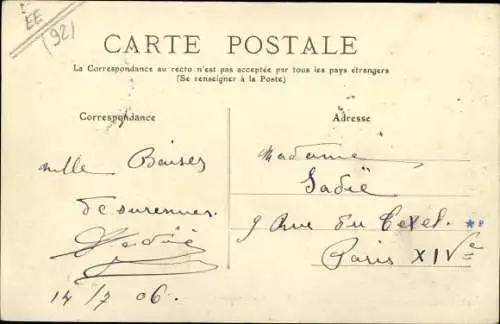 EE
(92)
CARTE POSTALE
La Correspondance au recto n'est pas acceptée par tous les pays étrangers
(Se renseigner à la Poste)
Correspondance
Adresse
mille Baisers
de surennes.
Sadië
14/7 06.
Madame
Sadië
9 Rue du Texel.
Paris XIVe